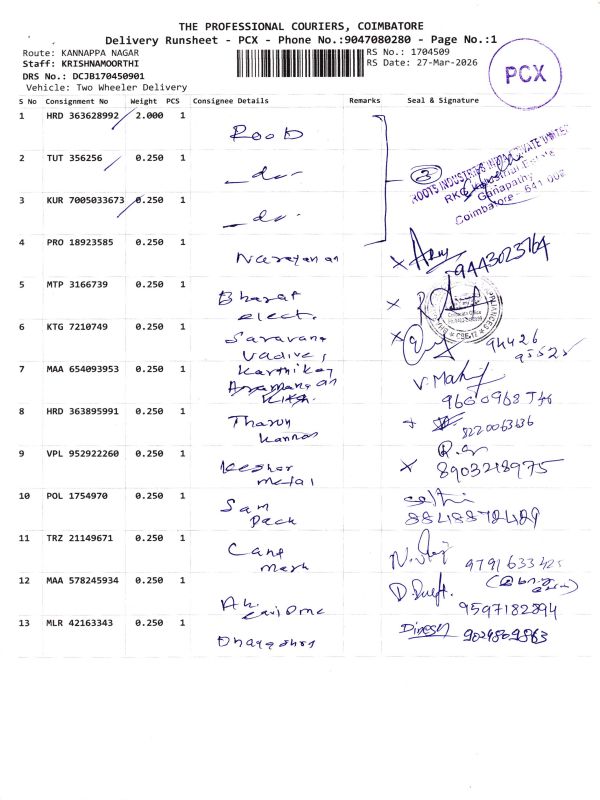 THE PROFESSIONAL COURIERS, COIMBATORE
Delivery Runsheet - PCX - Phone No.:9047080280 - Page No.:1
Route: KANNAPPA NAGAR
RS No.: 1704509
Staff: KRISHNAMOORTHI
RS Date: 27-Mar-2026
DRS No.: DCJB170450901
Vehicle: Two Wheeler Delivery
PCX
S No Consignment No Weight PCS Consignee Details Remarks Seal & Signature
1 HRD 363628992 2.000 1
ROOTS INDUSTRIES INDIA PRIVATE LIMITED
RKG Industrial Estate
Ganapathy
Coimbatore - 641 006
3
2 TUT 356256 0.250 1 -do-
3 KUR 7005033673 0.250 1 -do-
4 PRO 18923585 0.250 1 Narayanan 9443023764
5 MTP 3166739 0.250 1 Bharat
elect.
6 KTG 7210749 0.250 1 Saravana
Vadivel 94426
95525
7 MAA 654093953 0.250 1 Karthikey
V. Mahy
8 HRD 363895991 0.250 1 Tharun
Kannan 8220063636
9 VPL 952922260 0.250 1 Keshar
Metal 8903218975
10 POL 1754970 0.250 1 Sam
Pack selhi
11 TRZ 21149671 0.250 1 Cane
mash
12 MAA 578245934 0.250 1
9597182894
13 MLR 42163343 0.250 1 Dinesh 9024809863